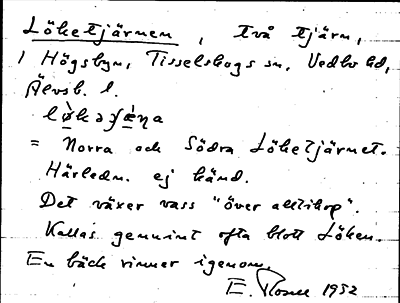 Löketjärnen, två tjärn,
i Högsbyn, Tisselskogs sn, Vedbo hd,
Älvsb. l.
= Norra och Södra Löketjärnet.
Härledn. ej känd.
Det växer vass "över alltihop".
Kallas gemensamt ofta blott Löken.
En bäck rinner igenom.
E. 1952